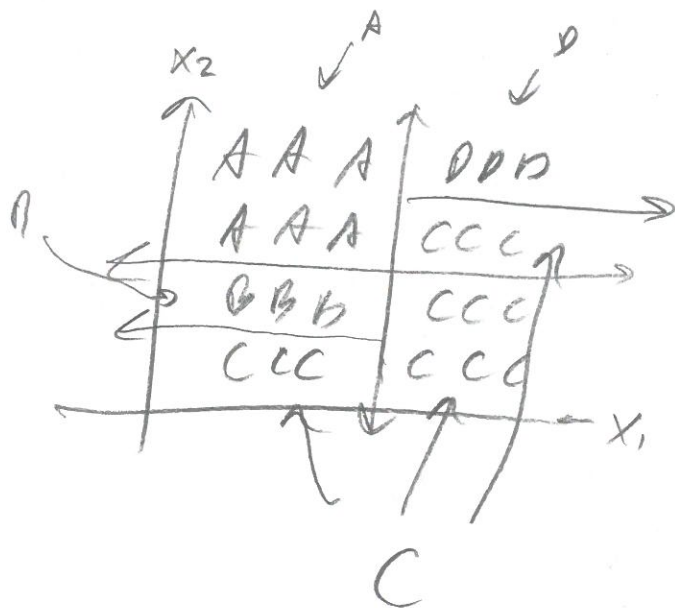 A
D
X2
A A A
D D D
A A A
C C C
B
B B B
C C C
C C C
C C C
X1
C